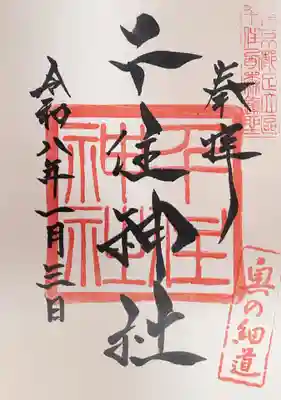 奉拝
千住神社
令和八年一月三日
千住神社
奥の細道